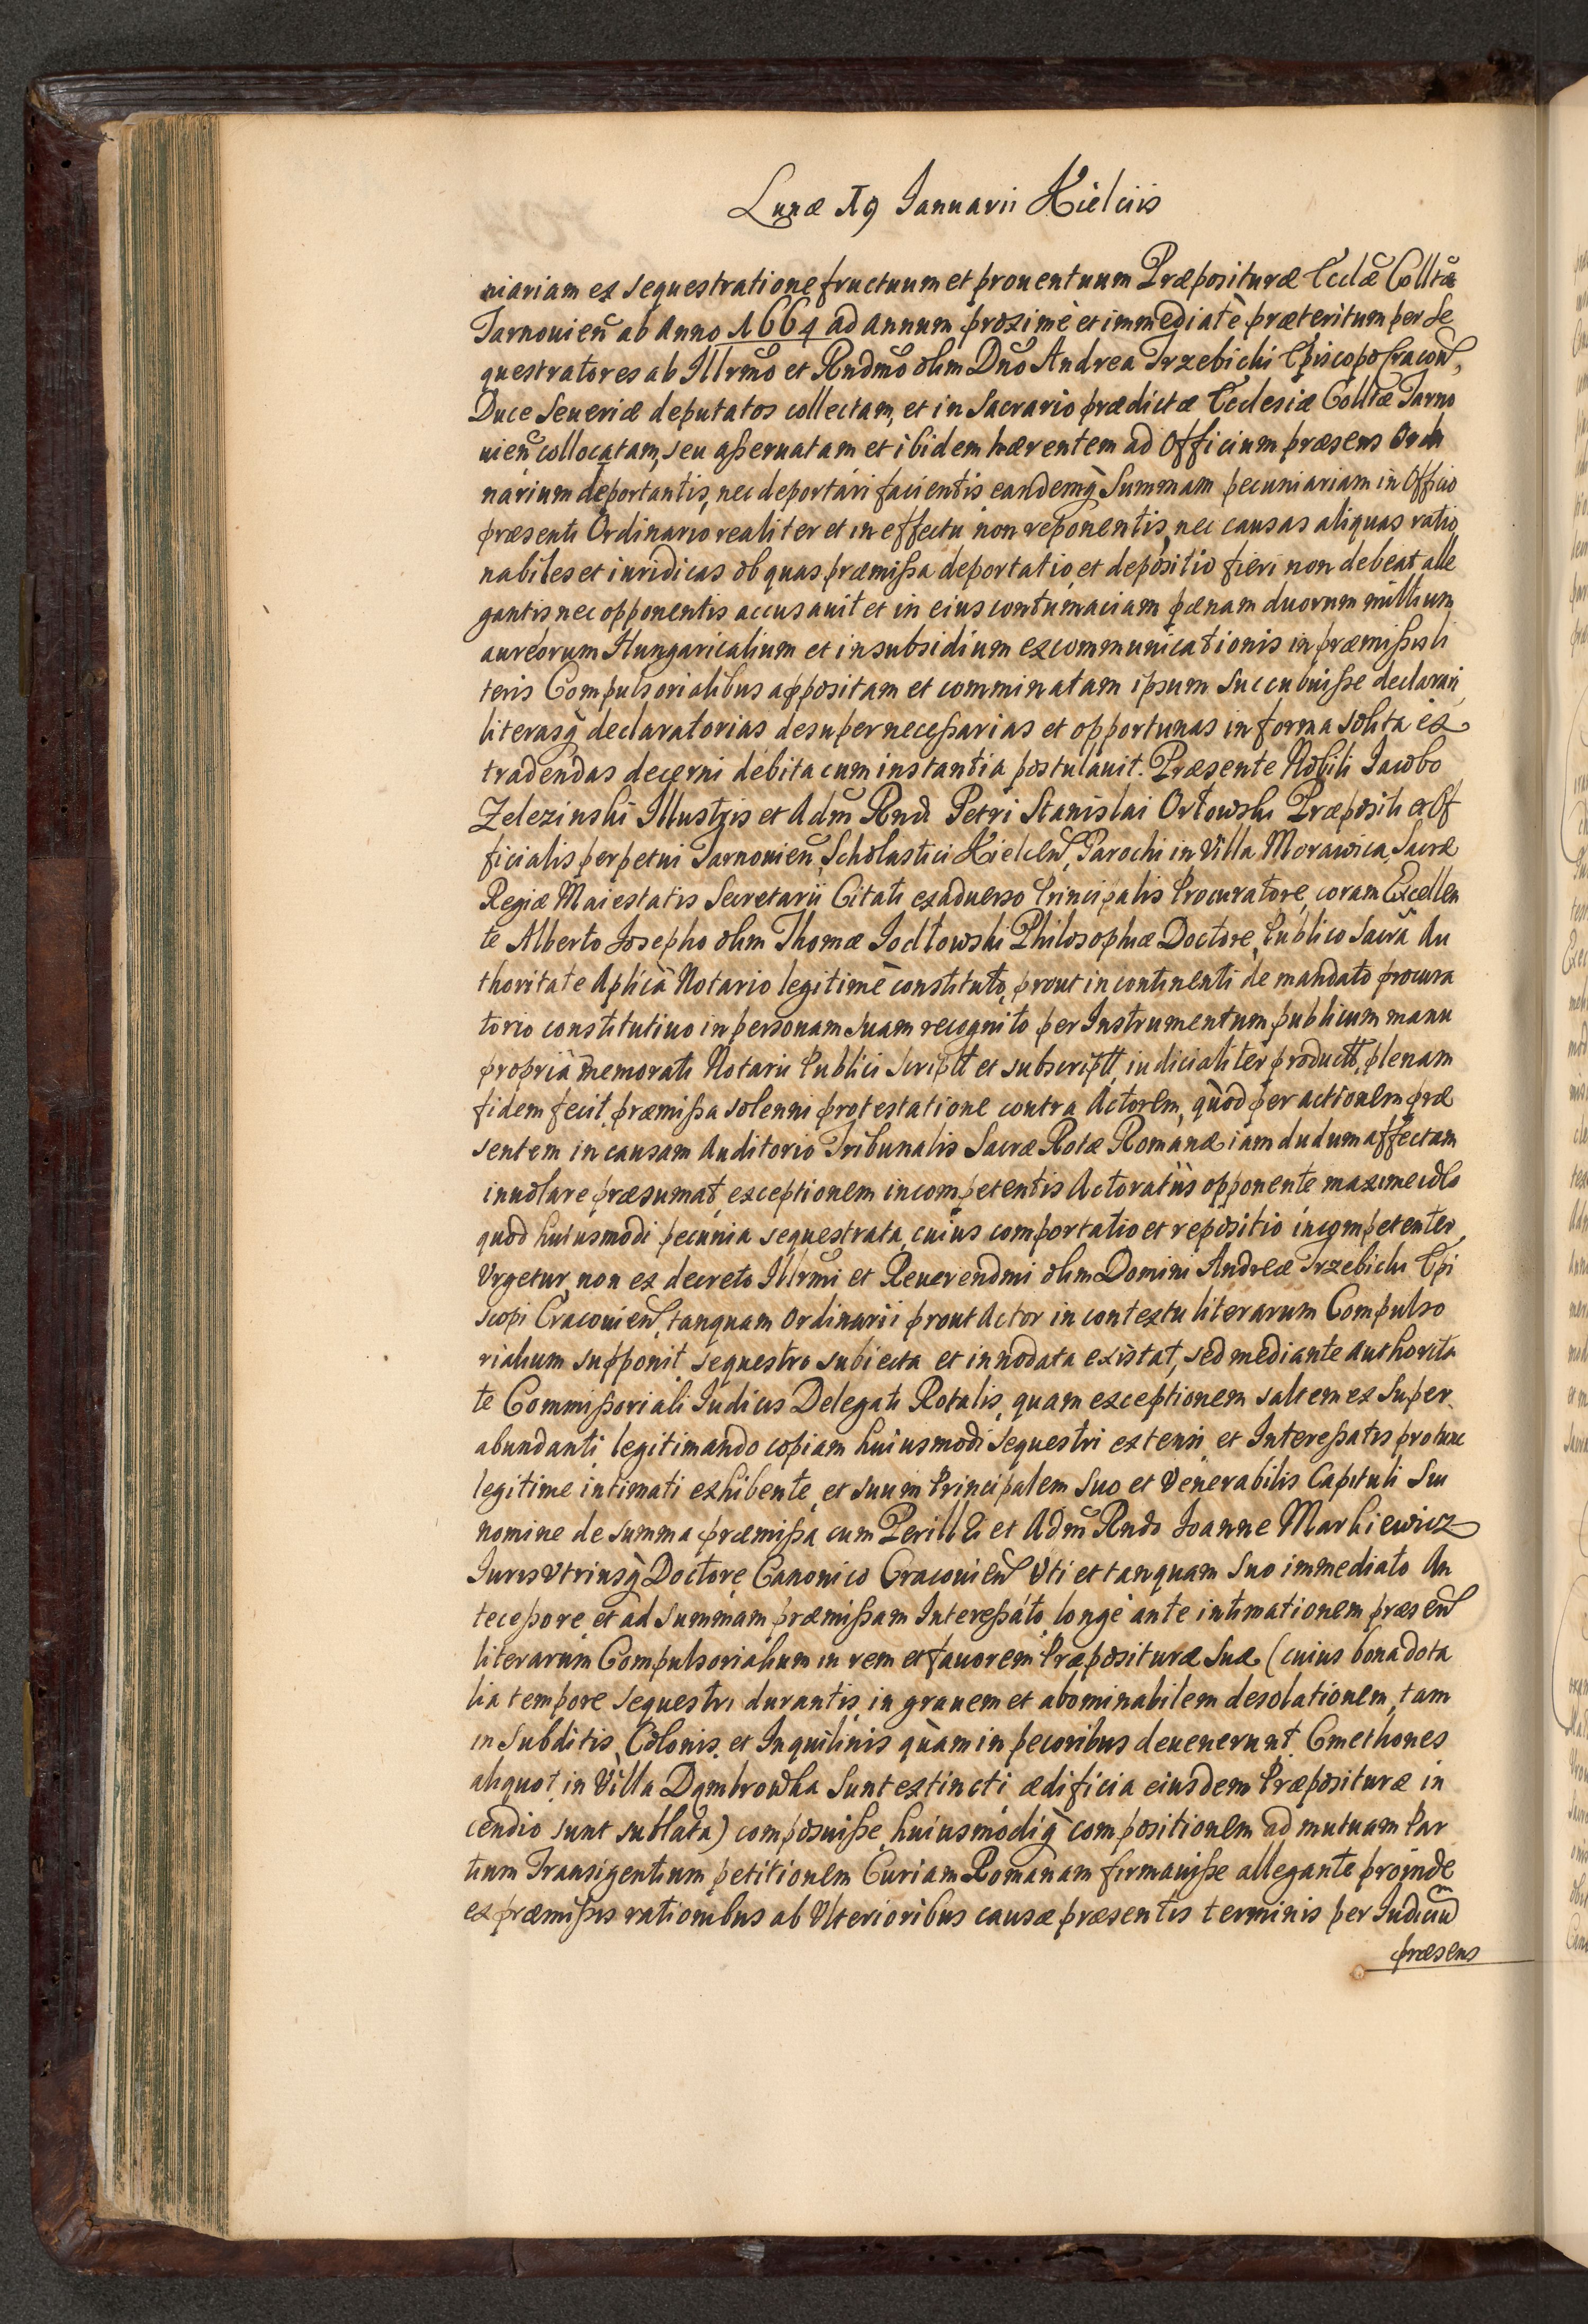 Lunæ 19 Ianuarii Kielciis
niariam ex sequestratione fructuum et prouentuum Præposituræ Ecclæ Colltæ
Tarnouien̄ ab Anno 1664 ad annum proximè et immediatè præteritum per Se
questratores ab Illrmo et Rndmo olim Dno Andrea Trzebicki Episcopo Cracoun̄,
Duce Seueriæ deputatos collectam, et in Sacrario prædictæ Ecclesiæ Colltæ Tarno
uien̄ collocatam, seu aßeruatam et ibidem hærentem ad Officium præsens Ordi
narium deportantis, nec deportari facientis eandemq̀ Summam pecuniariam in Officio
præsenti Ordinario realiter et in effectu non reponentis, nec causas aliquas ratio
nabiles et iuridicas ob quas præmißa deportatio et depositio fieri non debeat alle
gantis nec opponentis accusauit et in eius contumaciam pænam duorum millium
aureorum Hungaricalium et in subsidium excommunicationis in præmißis li
teris Compulsorialibus appositam et comminatam ipsum succubuiße declarari,
literasq̀ declaratorias desuper neceßarias et opportunas in forma solita ex
tradendas decerni debita cum instantia postulauit. Præsente Nobili Iacobo
Zelezinski Illustris et Adm̄ Rndi Petri Stanislai Orłowski Præpositi et Of
ficialis perpetui Tarnouien̄, Scholastici Kielcen̄, Parochi in Villa Morawica, Sacræ
Regiæ Maiestatis Secretarii Citati ex aduerso Principalis Procuratore, coram Excellen
te Alberto Josepho olim Thomæ Jodłowski Philosophiæ Doctore, Publico Sacrâ Au
thoritate Aplicâ Notario legitimè constituto, prout in continenti de mandato procura
torio constitutiuo in personam suam recognito per Instrumentum publicum manu
propriâ memorati Notarii Publici script̄t et subscript̄t, iudicialiter product̄t, plenam
fidem fecit, præmißa solenni protestatione contra Actorem, quòd per actionem præ
sentem in causam Auditorio Tribunalis Sacræ Rotæ Romanæ iam dudum affectam
inuolare præsumat, exceptionem incompetentis Actoratûs opponente maximè ideo
quod huiusmodi pecunia sequestrata, cuius comportatio et repositio incompetenter
Vrgetur, non ex decreto Illrmi et Reuerendmi olim Domini Andreæ Trzebicki Epi
scopi Cracouien̄, tanquam Ordinarii prout Actor in contextu literarum Compulso
rialium supponit, sequestro subiecta et innodata existat, sed mediante Authorita
te Commißoriali Iudicis Delegati Rotalis, quam exceptionem saltem ex Super
abundanti legitimando copiam huiusmodi sequestri extensi et Intereßatis pro tunc
legitime intimati exhibente, et suum Principalem Suo et Venerabilis Capituli Sui
nomine de summa præmißa cum Perilli et Adm̄ Rndo Joanne Markiewicz
Iuris Vtriusq̀ Doctore, Canonico Cracouien̄ Vti et tanquam Suo immediato An
teceßore et ad Summam præmißam Intereßato longè ante intimationem præsen̄
literarum Compulsorialium in rem et fauorem Præposituræ Suæ (cuius bona dota
lia tempore Sequestri durantis in grauem et abominabilem desolationem, tam
in Subditis, Colonis, et Inquilinis quàm in pecoribus deuenerunt. Cmethones
aliquot in Villa Dąmbrowka Sunt extincti ædificia eiusdem Præposituræ in
cendio sunt sublata) composuiße, huiusmodiq̀ compositionem ad mutuam Par
tium Transigentium petitionem Curiam Romanam firmauiße allegante proinde
ex præmißis rationibus ab Vlterioribus causæ præsentis terminis per Iudiciū
præsens